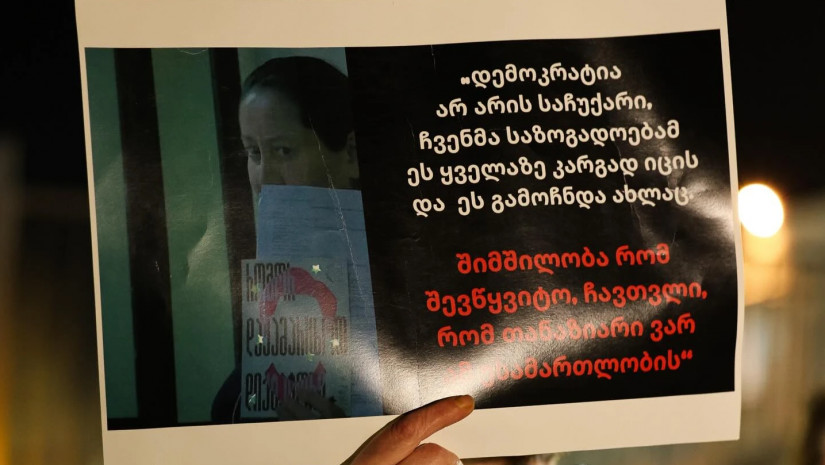 „დემოკრატია
არ არის საჩუქარი,
ჩვენმა საზოგადოებამ
ეს ყველაზე კარგად იცის
და ეს გამოჩნდა ახლაც.
შიმშილობა რომ
შევწყვიტო, ჩავთვლი,
რომ თანაზიარი ვარ
უსამართლობის“